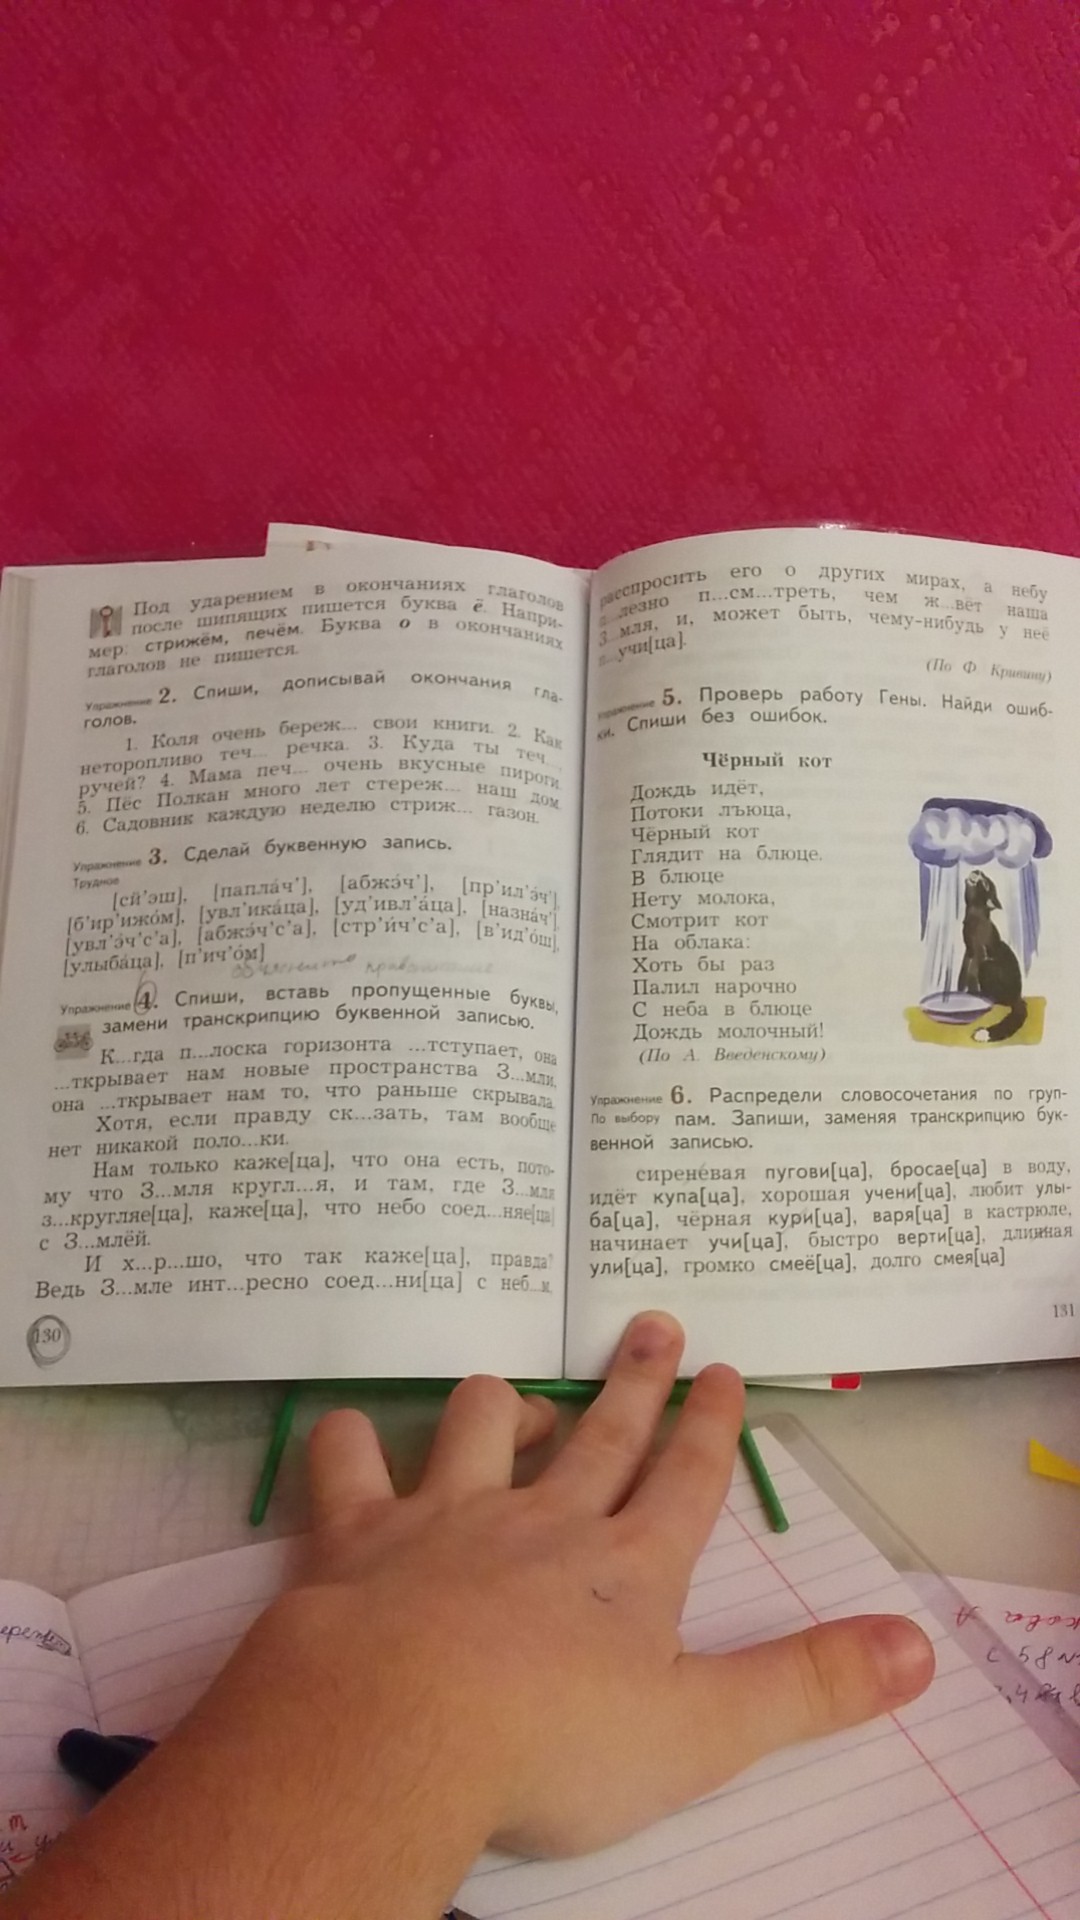 Под ударением в окончаниях глаголов
после шипящих пишется буква ё. Напри-
мер: стрижём, печём. Буква о в окончаниях
глаголов не пишется.
Упражнение 2. Спиши, дописывай окончания гла-
голов.
1. Коля очень береж... свои книги. 2. Как
неторопливо теч... речка. 3. Куда ты теч...,
ручей? 4. Мама печ... очень вкусные пироги.
5. Пёс Полкан много лет стереж... наш дом.
6. Садовник каждую неделю стриж... газон.
Упражнение 3. Сделай буквенную запись.
Трудное
[сй'эш], [папла́ч'], [абжэ́ч'], [пр'ил'э́ч'],
[б'ир'ижо́м], [увл'ика́ца], [уд'ивл'а́ца], [назна́ч'],
[увл'э́ч'с'а], [абжэ́ч'с'а], [стр'и́ч'с'а], [в'ид'о́ш],
[улыба́ца], [п'ич'о́м]
Упражнение 4. Спиши, вставь пропущенные буквы,
замени транскрипцию буквенной записью.
К...гда п...лоска горизонта ...тступает, она
...ткрывает нам новые пространства З...мли,
она ...ткрывает нам то, что раньше скрывала.
Хотя, если правду ск...зать, там вообще
нет никакой поло...ки.
Нам только каже[ца], что она есть, пото-
му что З...мля кругл...я, и там, где З...мля
з...кругляе[ца], каже[ца], что небо соед...няе[ца]
с З...млёй.
И х...р...шо, что так каже[ца], правда?
Ведь З...мле инт...ресно соед...ни[ца] с неб...м,
130
расспросить его о других мирах, а небу
п...лезно п...см...треть, чем ж...вёт наша
З...мля, и, может быть, чему-нибудь у неё
п...учи[ца].
(По Ф. Кривину)
Упражнение 5. Проверь работу Гены. Найди ошиб-
ки. Спиши без ошибок.
Чёрный кот
Дождь идёт,
Потоки лъюца,
Чёрный кот
Глядит на блюце.
В блюце
Нету молока,
Смотрит кот
На облака:
Хоть бы раз
Палил нарочно
С неба в блюце
Дождь молочный!
(По А. Введенскому)
Упражнение 6. Распредели словосочетания по груп-
По выбору пам. Запиши, заменяя транскрипцию бук-
венной записью.
сирене́вая пугови[ца], бросае[ца] в воду,
идёт купа[ца], хорошая учени[ца], любит улы-
ба[ца], чёрная кури[ца], варя[ца] в кастрюле,
начинает учи[ца], быстро верти[ца], длинная
ули[ца], громко смеё[ца], долго смея[ца]
131